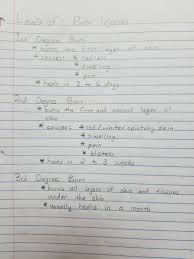 Levels of Burn Injuries
1st Degree Burn
* burns the first layer of skin
* causes * redness
* swelling
* pain
* heals in 2 to 6 days
2nd Degree Burn
* burns the first and second layer of skin
* causes * red/whiter splotchy skin
* swelling
* pain
* blisters
* heals in 2 to 3 weeks
3rd Degree Burn
* burns all layers of skin and tissues
under the skin
* usually heals in a month